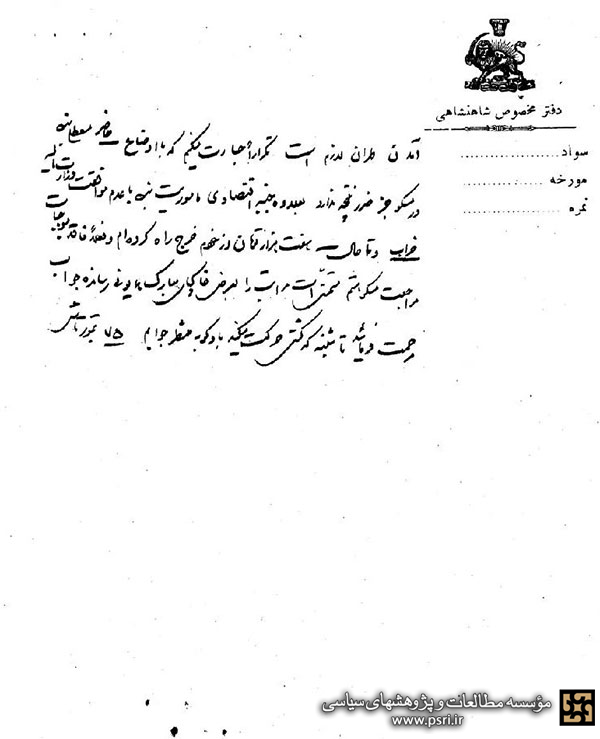 دفتر مخصوص شاهنشاهی
سواد
مورخه
نمره
آمدن طهران لازم است تکراراً جسارت میکنم که با اوضاع حاضر معطلی بنده
در مسکو جز ضرر نتیجه ندارد بعلاوه جنبه اقتصادی ماموریت بنده با عدم موافقت وزارت مالیه
خراب و تا حال هفت هزار تومان از خودم خرج راه کرده‌ام و فعلاً فاقد موجبات
مراجعت میباشم متمنی است مراتب را بعرض خاکپای مبارک همایونی رسانده جواب
مرحمت فرمائید تا شنبه که کشتی حرکت میکند بادکوبه منتظر جوابم ۷۵ تیمورتاش
مؤسسه مطالعات و پژوهشهای سیاسی
www.psri.ir